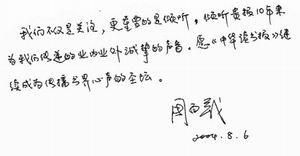 我们不仅是关注，更重要的是倾听，倾听贵报10年来
为我们传递的业内业外诚挚的声音。愿《中华读书报》继
续成为传播书界心声的圣坛。
周百义
2004.8.6